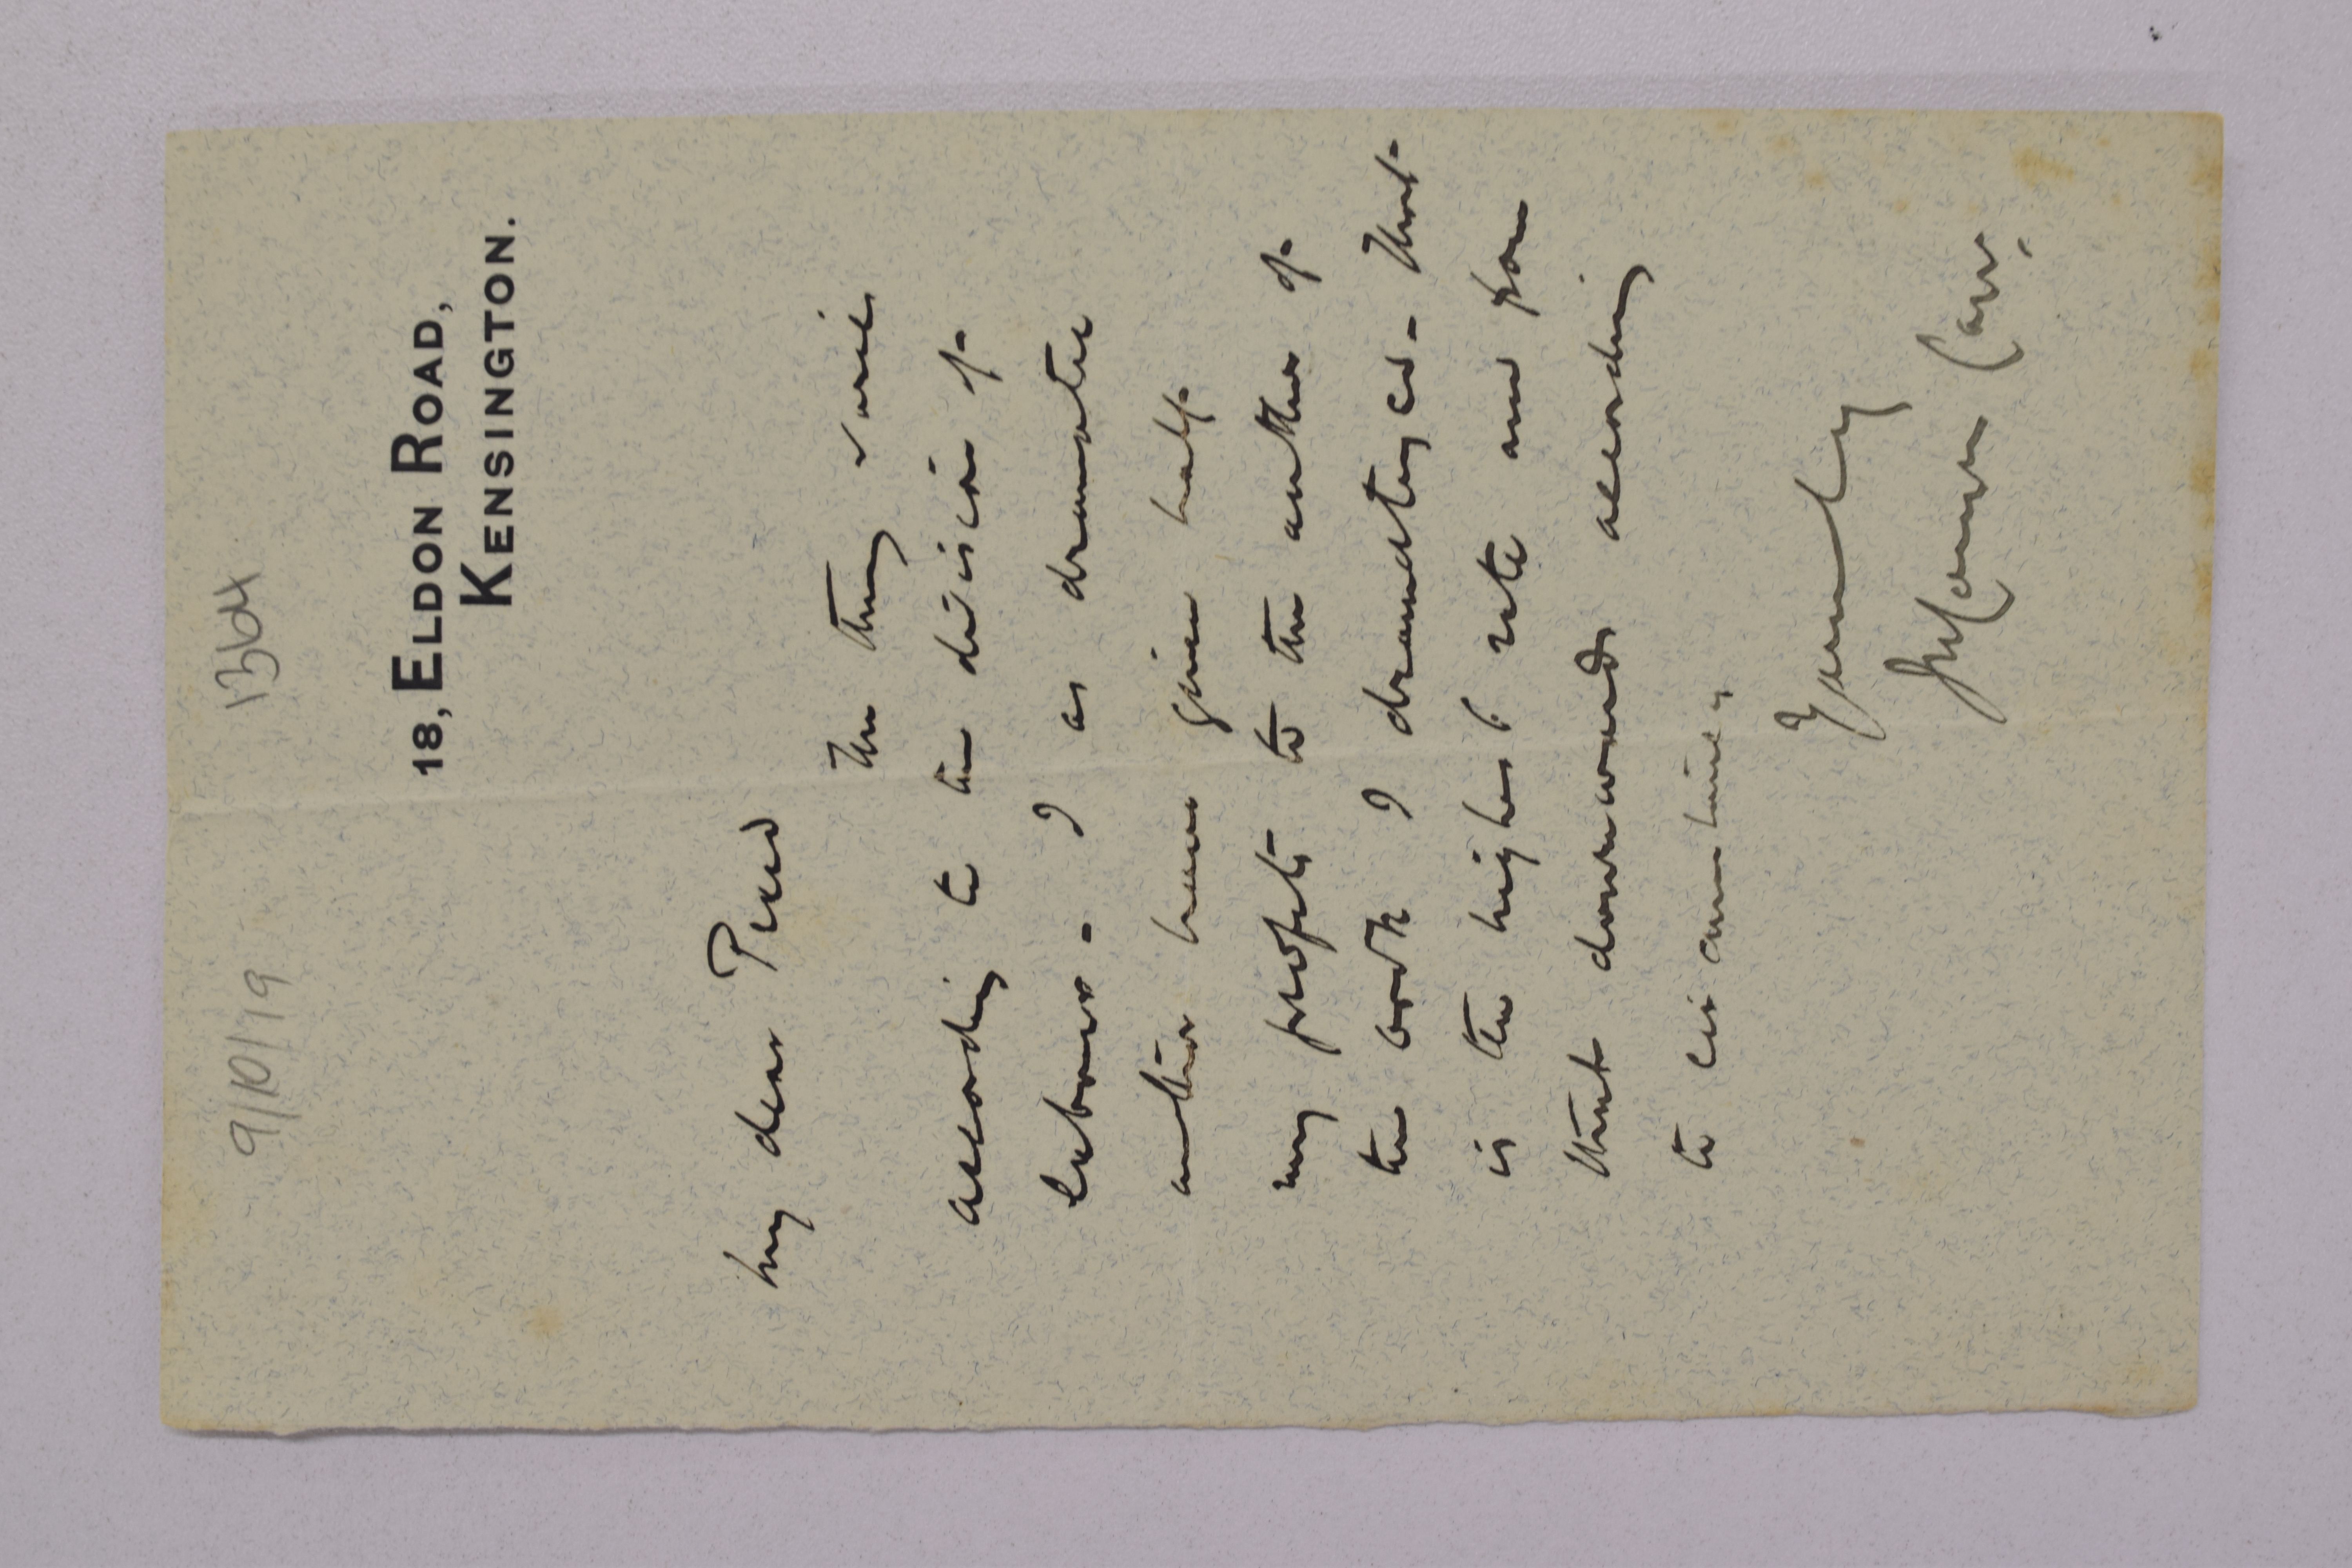 9/10/19 1364
18, ELDON ROAD,
KENSINGTON.
My dear Reed
The thing varies
according to the division of
labour - I as dramatic
author have given half
my profits to the author of
the book I dramatized - that
is the highest rate and from
that downwards according
to circumstances
Yours truly
J W Comyns Carr.